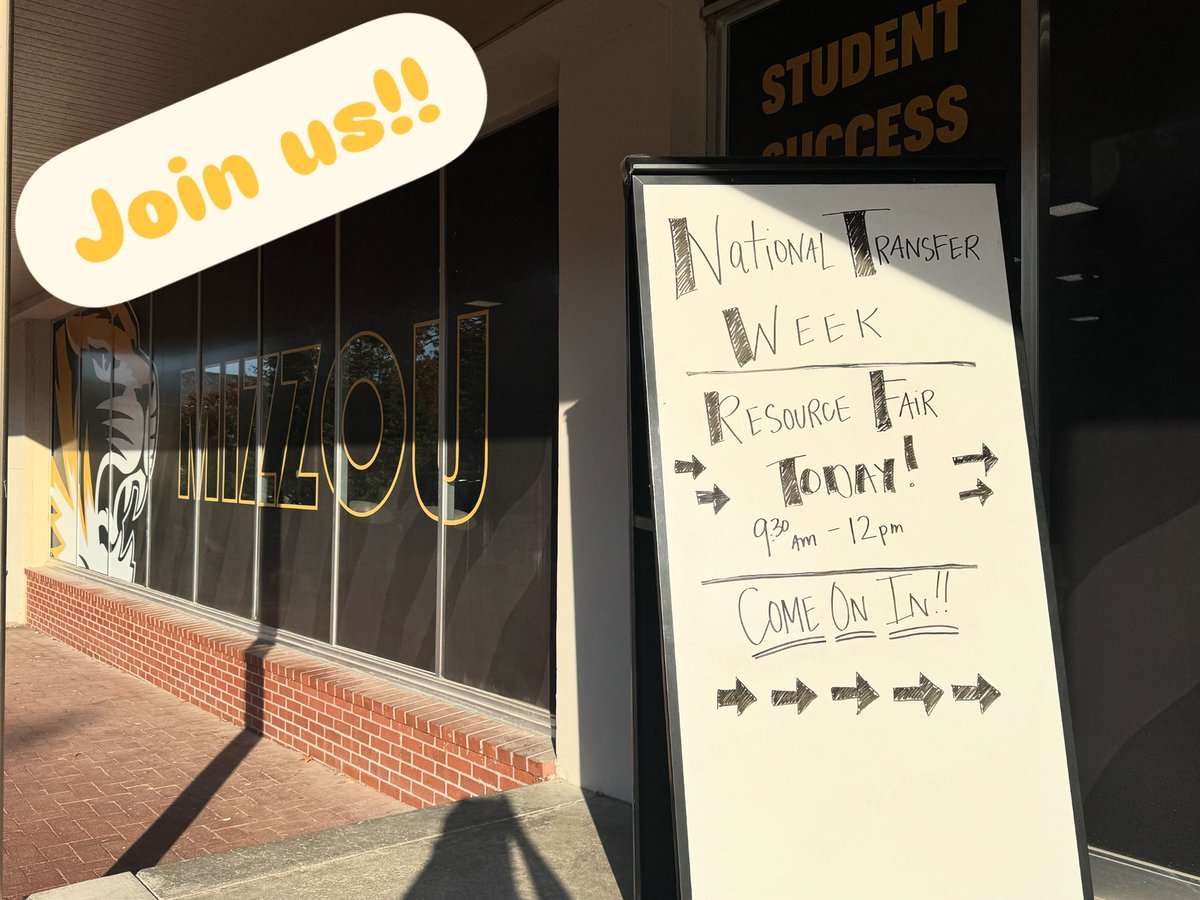 Join us!!
MIZZOU
STUDENT
SUCCESS
National Transfer
Week
Resource Fair
Today!
9:30 Am - 12pm
Come On In!!